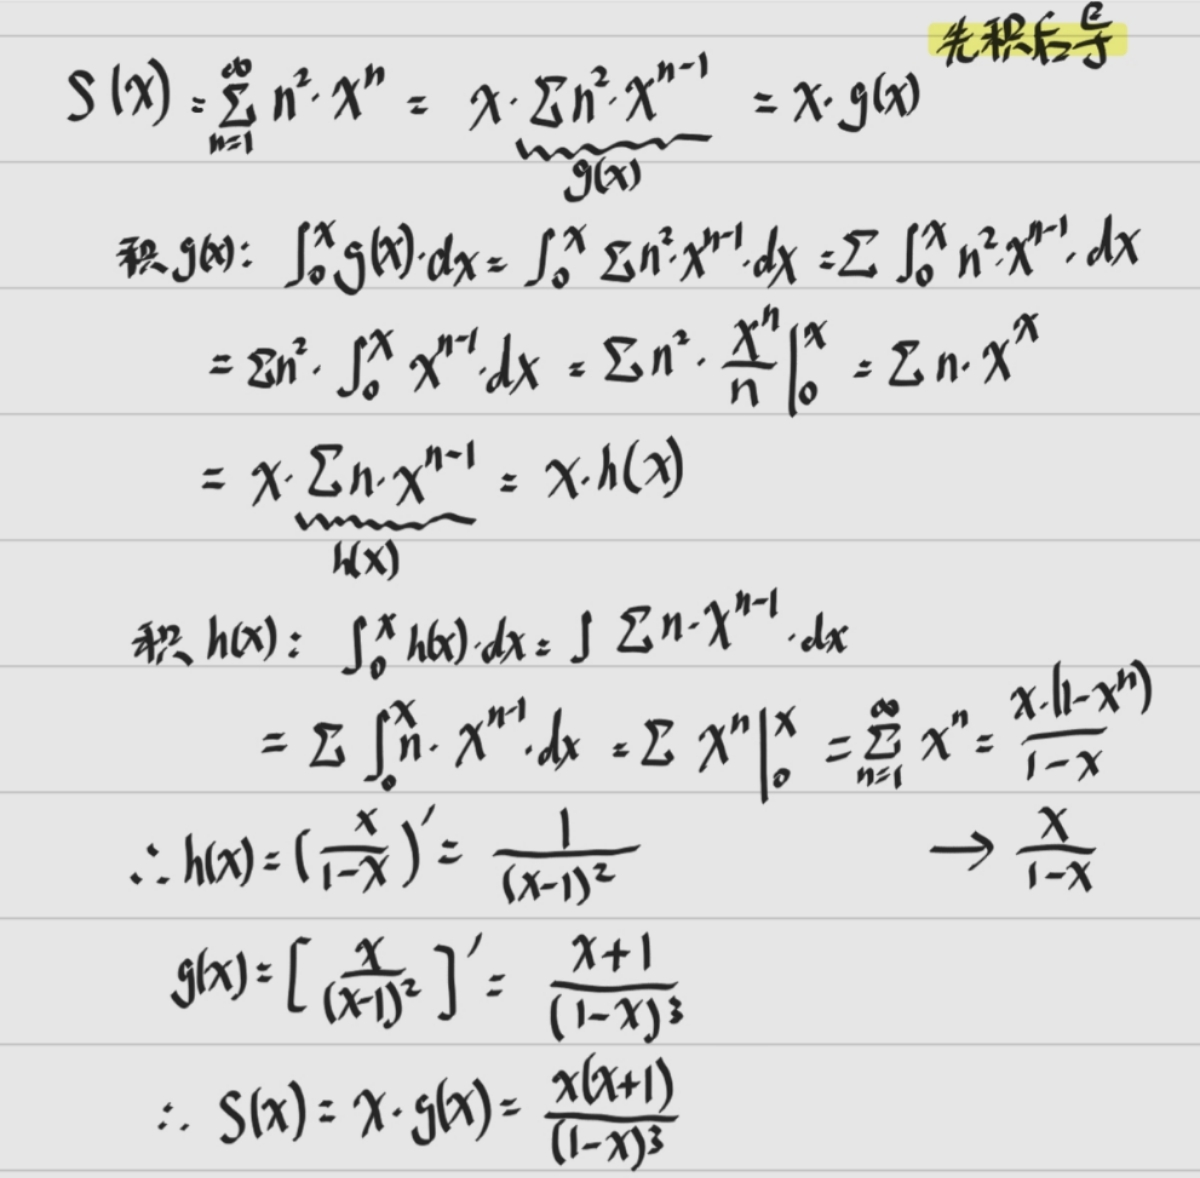 先积后导
S(x) = \sum_{n=1}^{∞} n²·xⁿ = x·\underbrace{∑n²·x^{n-1}}_{g(x)} = x·g(x)
积 g(x): ∫₀ˣ g(x)·dx = ∫₀ˣ ∑n²·x^{n-1}·dx = ∑ ∫₀ˣ n²·x^{n-1}·dx
= ∑n²·∫₀ˣ x^{n-1}·dx = ∑ n²·\frac{xⁿ}{n}|₀ˣ = ∑ n·x^x
= x·\underbrace{∑ n·x^{n-1}}_{h(x)} = x·h(x)
积 h(x): ∫₀ˣ h(x)·dx = ∫ ∑ n·x^{n-1}·dx
= ∑ ∫₀ˣ n·x^{n-1}·dx = ∑ xⁿ|₀ˣ = \sum_{n=1}^{∞} xⁿ = \frac{x·(1-xⁿ)}{1-x}
∴ h(x) = (\frac{x}{1-x})' = \frac{1}{(x-1)²} → \frac{x}{1-x}
g(x) = [\frac{x}{(x-1)²}]' = \frac{x+1}{(1-x)³}
∴ S(x) = x·g(x) = \frac{x(x+1)}{(1-x)³}